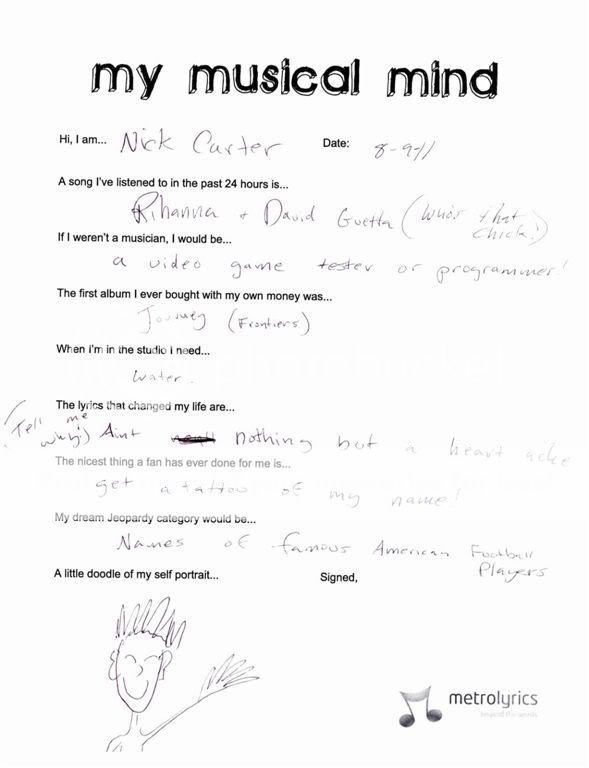 my musical mind
Hi, I am... Nick Carter Date: 8-9-11
A song I've listened to in the past 24 hours is...
Rihanna + David Guetta (Who's that
chick!)
If I weren't a musician, I would be...
a video game tester or programmer!
The first album I ever bought with my own money was...
Journey (Frontiers)
When I'm in the studio I need...
water.
The lyrics that changed my life are...
(Tell me
why) Aint nothing but a heart ache
The nicest thing a fan has ever done for me is...
get a tattoo of my name!
My dream Jeopardy category would be...
Names of famous American Football
Players
A little doodle of my self portrait... Signed,
metrolyrics
beyond the words